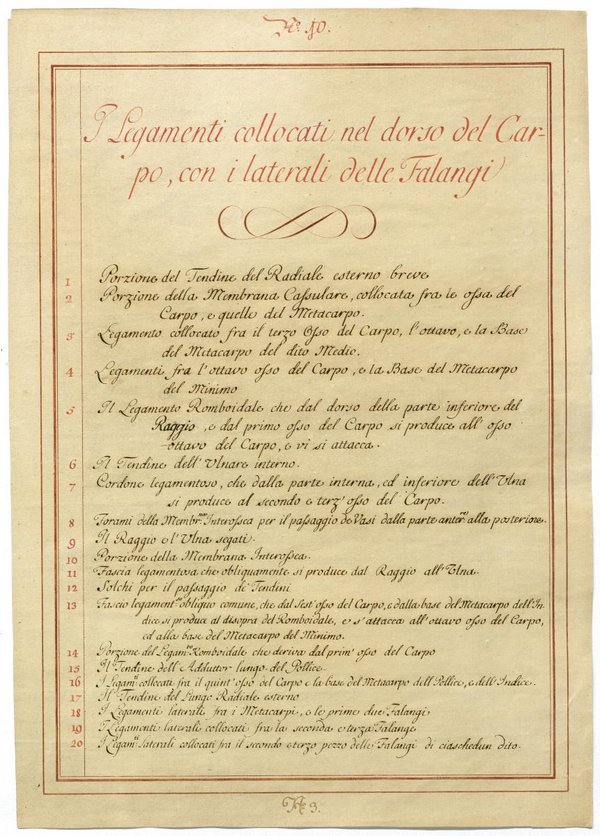 No. 10.
I Legamenti collocati nel dorso del Car-
po, con i laterali delle Falangi
1 Porzione del Tendine del Radiale esterno breve
2 Porzione della Membrana Cassulare, collocata fra le ossa del
Carpo, e quelle del Metacarpo.
3 Legamento collocato fra il terzo Osso del Carpo, l'ottavo, e la Base
del Metacarpo del dito Medio.
4 Legamenti fra l'ottavo osso del Carpo, e la Base del Metacarpo
del Minimo
5 Il Legamento Romboidale che dal dorso della parte inferiore del
Raggio, e dal primo osso del Carpo si produce all'osso
ottavo del Carpo, e vi si attacca.
6 Il Tendine dell'Ulnare interno.
7 Cordone legamentoso, che dalla parte interna, ed inferiore dell'Ulna
si produce al secondo e terz'osso del Carpo.
8 Forami della Membr.na Interossea per il passaggio de Vasi dalla parte anter.re alla posteriore.
9 Il Raggio e l'Ulna segati.
10 Porzione della Membrana Interossea.
11 Fascia legamentosa che obliquamente si produce dal Raggio all'Ulna.
12 Solchi per il passaggio di Tendini
13 Fascio legament.o obliquo comune, che dal sest'osso del Carpo, e dalla base del Metacarpo dell'In-
dice si produce al disopra del Romboidale, e s'attacca all'ottavo osso del Carpo,
ed alla base del Metacarpo del Minimo.
14 Porzione del Legam.to Romboidale che deriva dal prim'osso del Carpo
15 Il Tendine dell'Adduttor lungo del Pollice.
16 I Legam.ti collocati fra il quint'osso del Carpo e la base del Metacarpo dell Pollice, e dell'Indice.
17 Il Tendine del Lungo Radiale esterno
18 I Legamenti laterali fra i Metacarpi, e le prime due Falangi
19 I Legamenti laterali collocati fra la seconda e terza Falange
20 I Legam.ti laterali collocati fra il secondo e terzo pezzo delle Falangi di ciaschedun dito.
3.